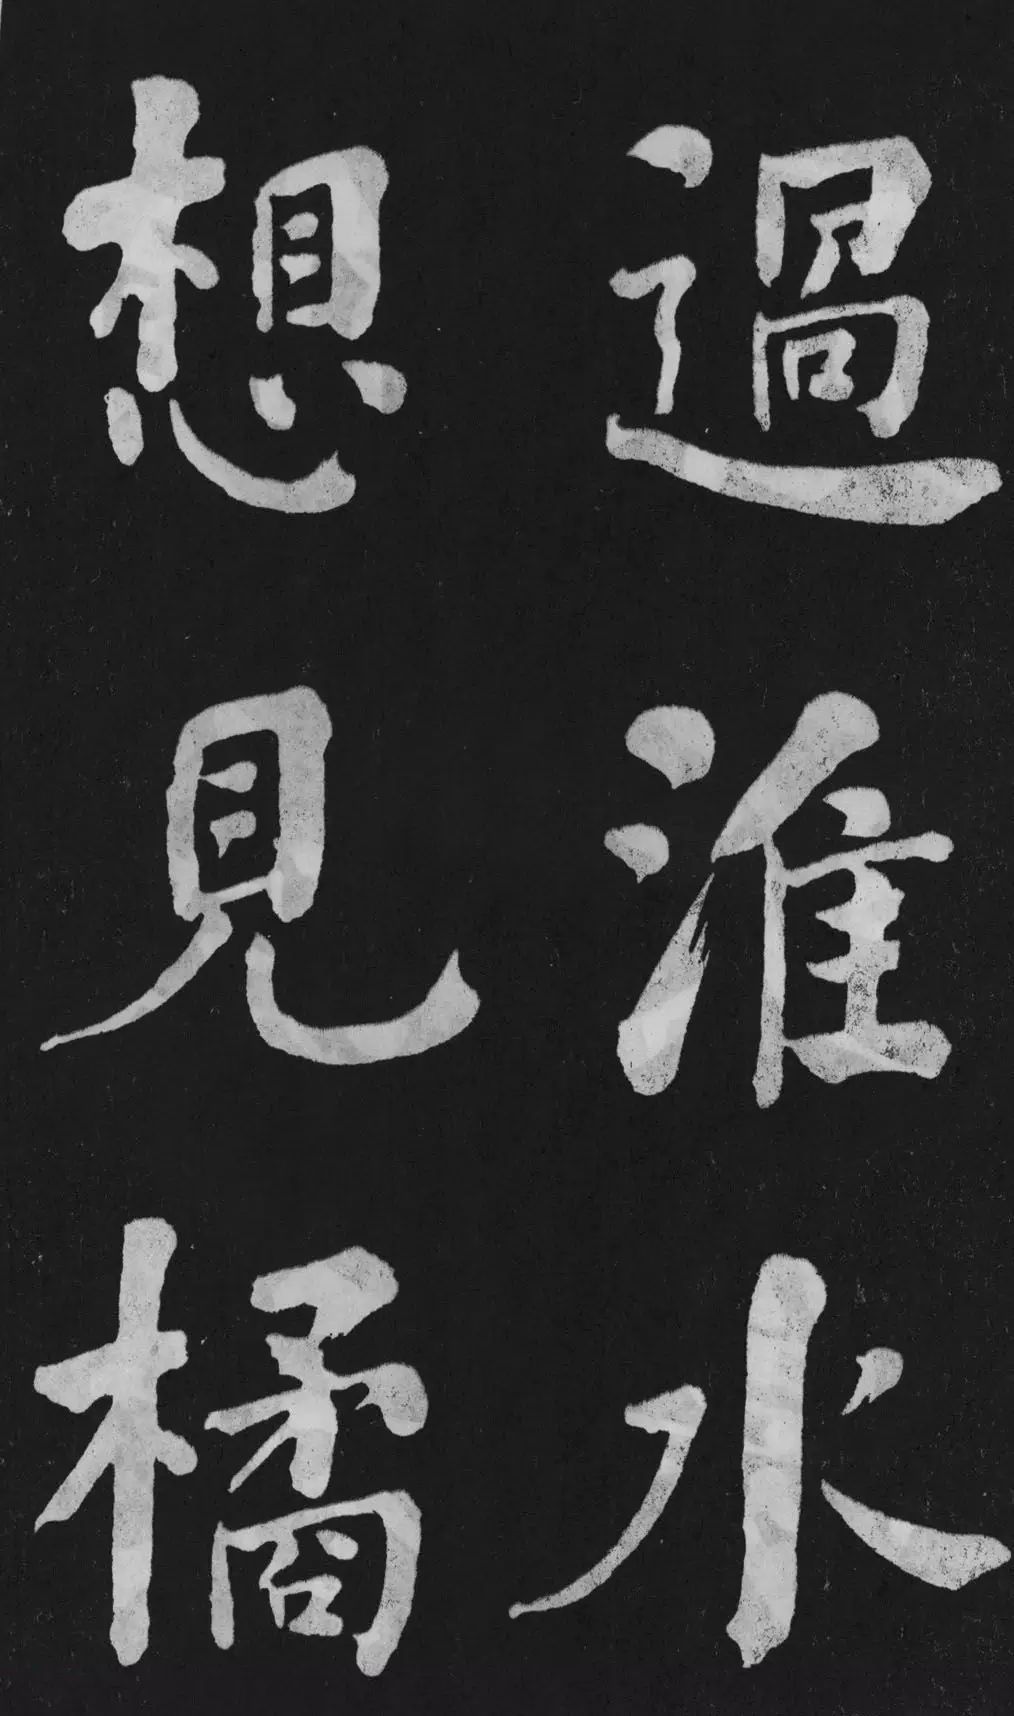 過淮水
想見橘